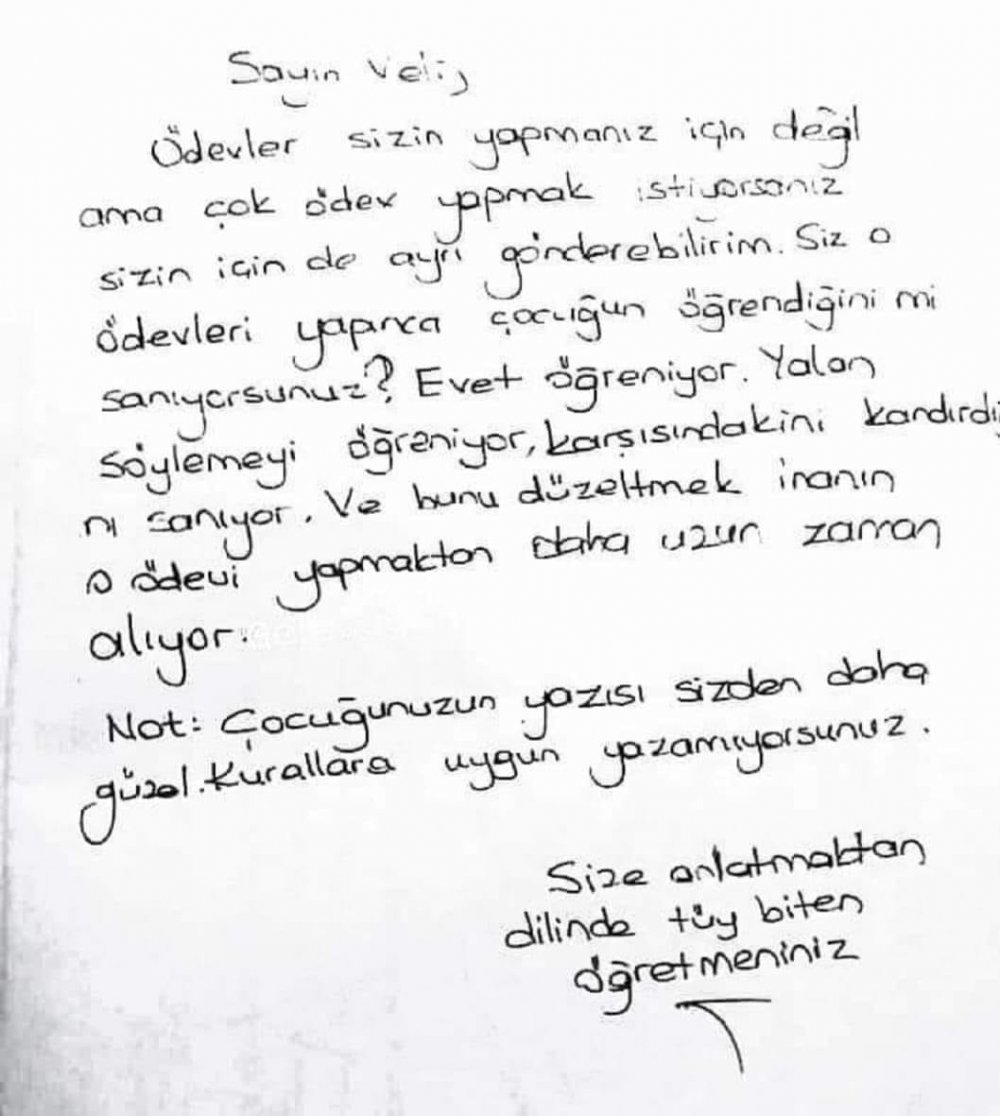 Sayın Veli,
Ödevler sizin yapmanız için değil
ama çok ödev yapmak istiyorsanız
sizin için de ayrı gönderebilirim. Siz o
ödevleri yapınca çocuğun öğrendiğini mi
sanıyorsunuz? Evet öğreniyor. Yalan
söylemeyi öğreniyor, karşısındakini kandırdığı
nı sanıyor. Ve bunu düzeltmek inanın
o ödevi yapmaktan daha uzun zaman
alıyor.
Not: Çocuğunuzun yazısı sizden daha
güzel. Kurallara uygun yazamıyorsunuz.
Size anlatmaktan
dilinde tüy biten
öğretmeniniz